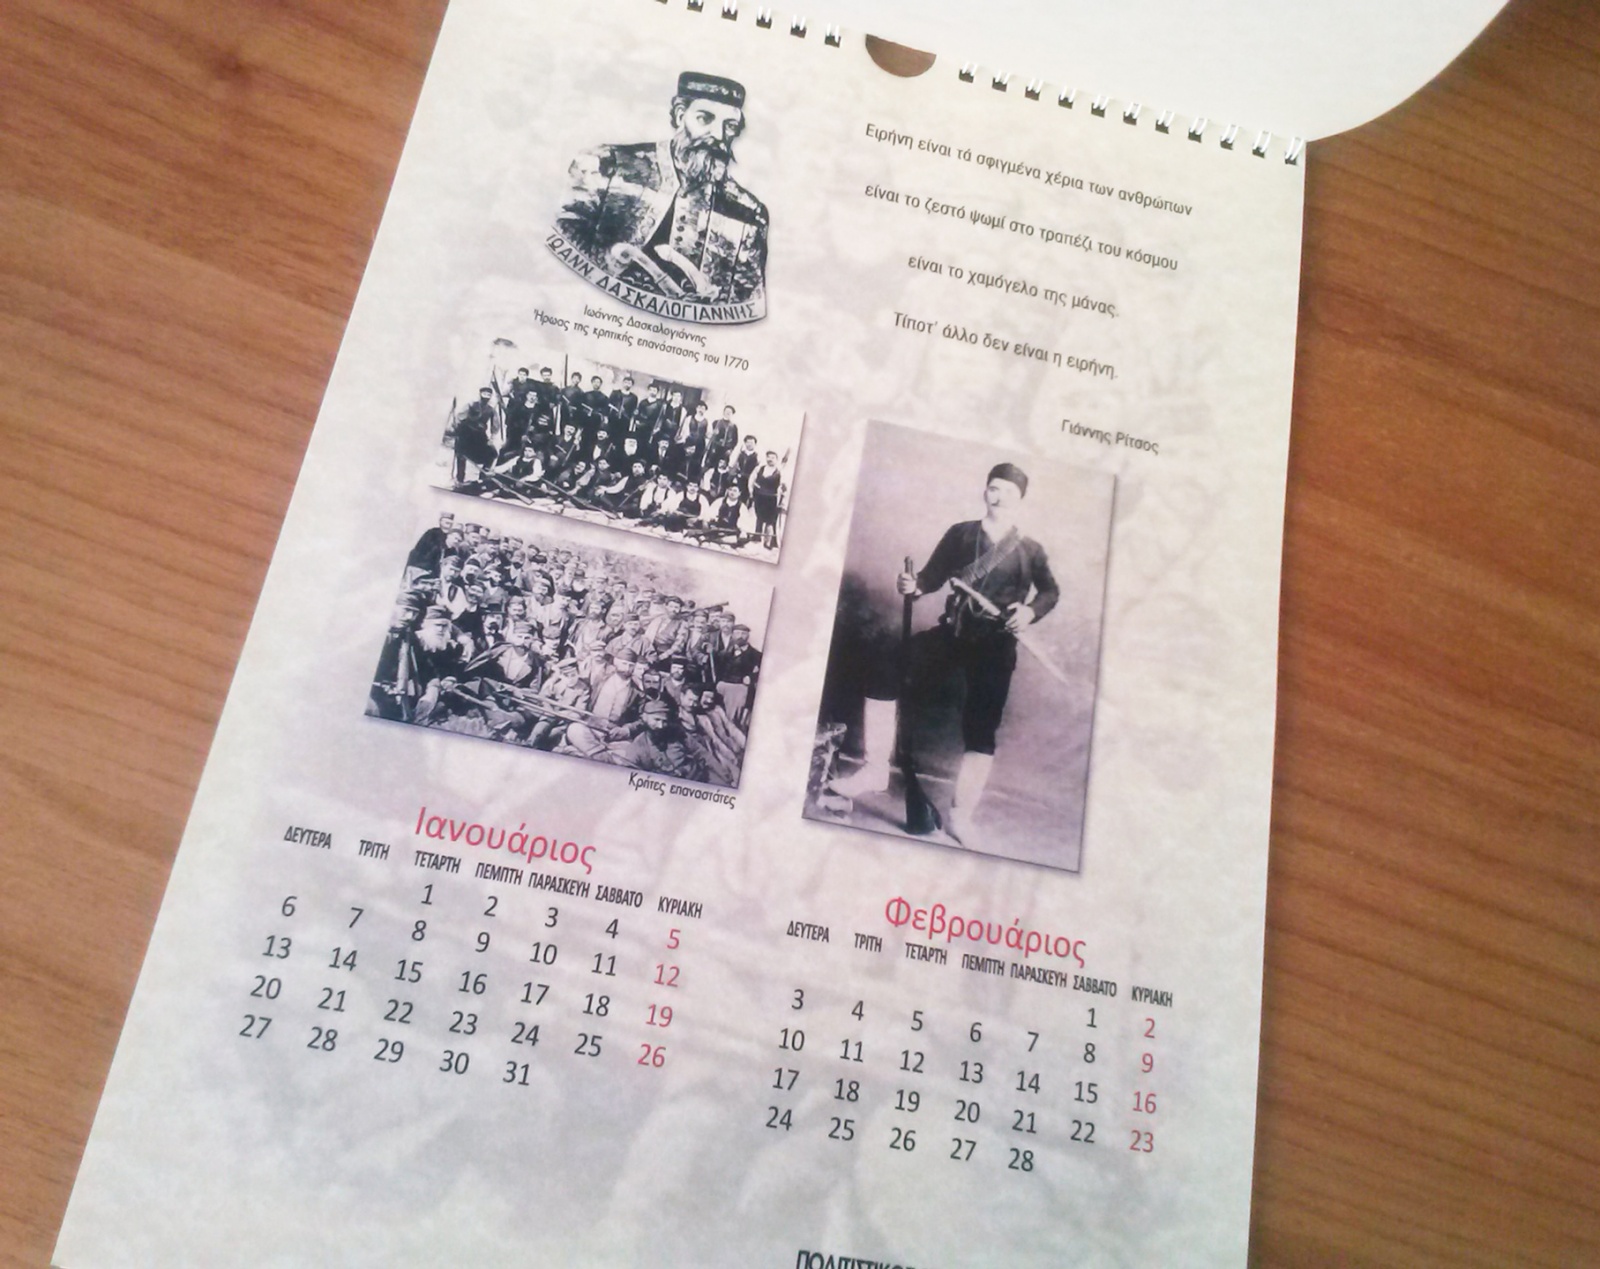 Ειρήνη είναι τά σφιγμένα χέρια των ανθρώπων
είναι το ζεστό ψωμί στο τραπέζι του κόσμου
είναι το χαμόγελο της μάνας.
Τίποτ' άλλο δεν είναι η ειρήνη.
Γιάννης Ρίτσος
ΙΩΑΝΝ ΔΑΣΚΑΛΟΓΙΑΝΝΗΣ
Ιωάννης Δασκαλογιάννης
Ήρωος της κρητικής επανάστασης του 1770
Κρήτες επαναστάτες
Ιανουάριος
ΔΕΥΤΕΡΑ ΤΡΙΤΗ ΤΕΤΑΡΤΗ ΠΕΜΠΤΗ ΠΑΡΑΣΚΕΥΗ ΣΑΒΒΑΤΟ ΚΥΡΙΑΚΗ
1 2 3 4 5
6 7 8 9 10 11 12
13 14 15 16 17 18 19
20 21 22 23 24 25 26
27 28 29 30 31
Φεβρουάριος
ΔΕΥΤΕΡΑ ΤΡΙΤΗ ΤΕΤΑΡΤΗ ΠΕΜΠΤΗ ΠΑΡΑΣΚΕΥΗ ΣΑΒΒΑΤΟ ΚΥΡΙΑΚΗ
1 2
3 4 5 6 7 8 9
10 11 12 13 14 15 16
17 18 19 20 21 22 23
24 25 26 27 28